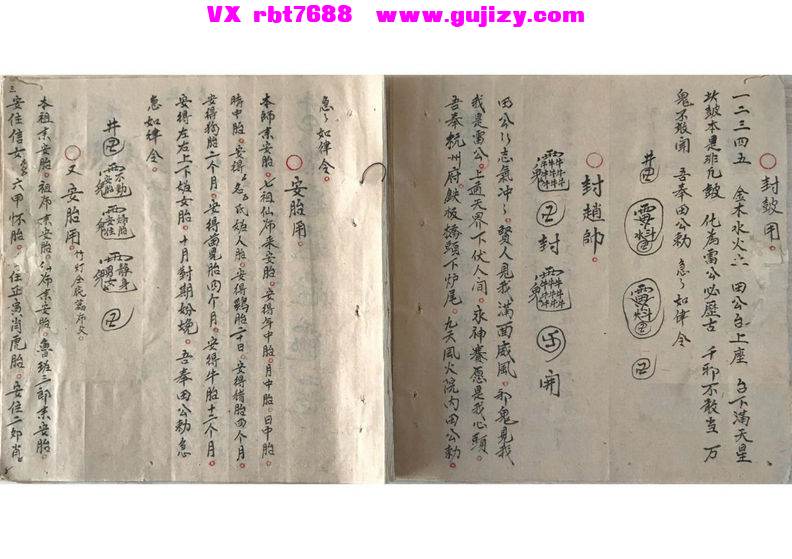 VX rbt7688   www.gujizy.com
封鼓用
一二三四五 金木水火土 田公台上座 台下滿天星
鼓本是非凡鼓 化為雷公必歷古 千邪不敢当 万
鬼不敢闻 吾奉田公勅 急〻如律令
井
封趙帥
封 開
田公〻志氣冲〻 賢人見我滿面威風 邪鬼見我
我是雷公 上通天界下伏人间 求神賽愿是我心頭
吾奉杭州府鉄板橋頭下炉尾 九天風火院内田公勅
急〻如律令
安胎用
本師来安胎 七祖仙師来安胎 安得年中胎 月中胎 日中胎
時中胎 安得〻名〻氏姃人胎 安得鷄胎二十日 安得猪胎四个月
安得狗胎二个月 安得胎四个月 安得牛胎十二个月
安得左右上下姃女胎 十月對期分娩 吾奉田公勅急
急如律令
井
又安胎用
本祖来安胎 祖師来安胎 仙師来安胎 魯班三郎来安胎
三
安住信女 六甲怀胎 住正寅肖虎胎 安住二卯肖